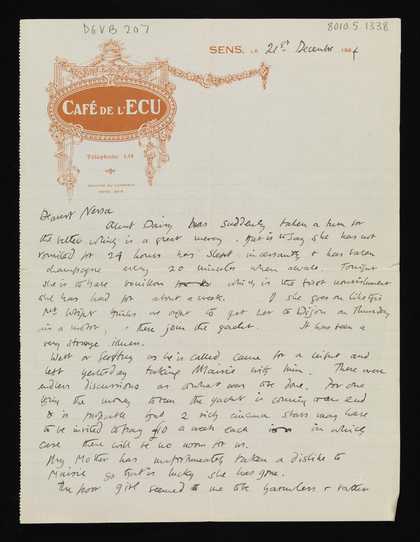 DGVB 207
8010.5.1338
SENS, LE 21st Decembre 192
CAFÉ DE L'ECU
Téléphone
Dearest Nessa
Aunt Daisy has suddenly taken a turn for
the better which is a great mercy. that is to say she has not
vomited for 24 hours has slept incessantly & has taken
champagne every 20 minutes when awake. Tonight
she is to have bouillon which is the first nourishment
she has had for about a week. If she goes on like this
Mr Wright thinks we ought to get her to Dijon on Thursday
in a motor, & then join the yacht. It has been a
very strange illness.
West or Geoffrey as he is called came for a night and
left yesterday taking Maisie with him. There were
endless discussions as to what was to be done. For one
thing the money to run the yacht is coming to an end
& it is probable that 2 rich cinema stars may have
to be invited to pay a week each in which
case there will be no room for us.
My Mother has unfortunately taken a dislike to
Maisie so that is lucky she has gone.
The poor girl seemed to me to be harmless & rather